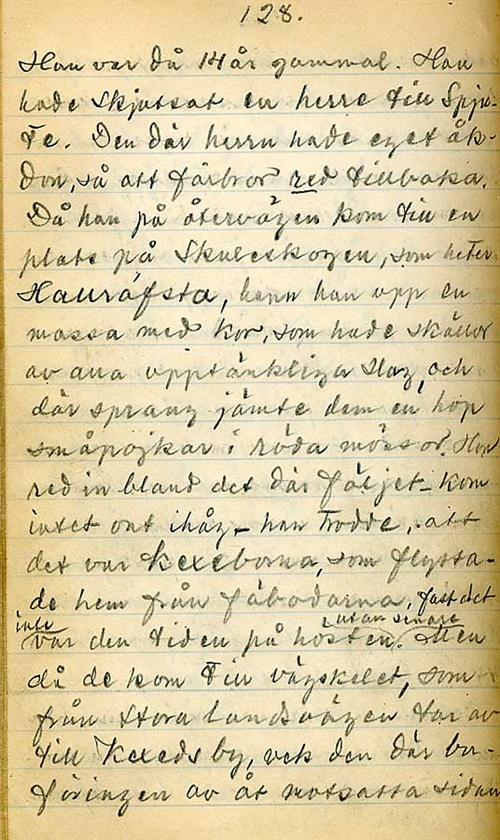 128.
Han var då 14 år gammal. Han
hade skjutsat en herre till Spju-
te. Den där herrn hade eget åk-
don, så att farbror red tillbaka.
Då han på återvägen kom till en
plats på Skuleskogen, som heter
hann han upp en
massa med kor, som hade skällor
av alla upptänkliga slag, och
där sprang jämte dem en hop
småpojkar i röda mössor. Han
red in bland det där följet - kom
intet ont ihåg - han trodde, att
det var Kexeborna, som flytta-
de hem från fäbodarna, fast det
inte var den tiden på hösten utan senare. Men
då de kom till vägskelet, som
från stora landsvägen tar av
till Kexeds by, vek den där bu-
föringen av åt motsatta sidan